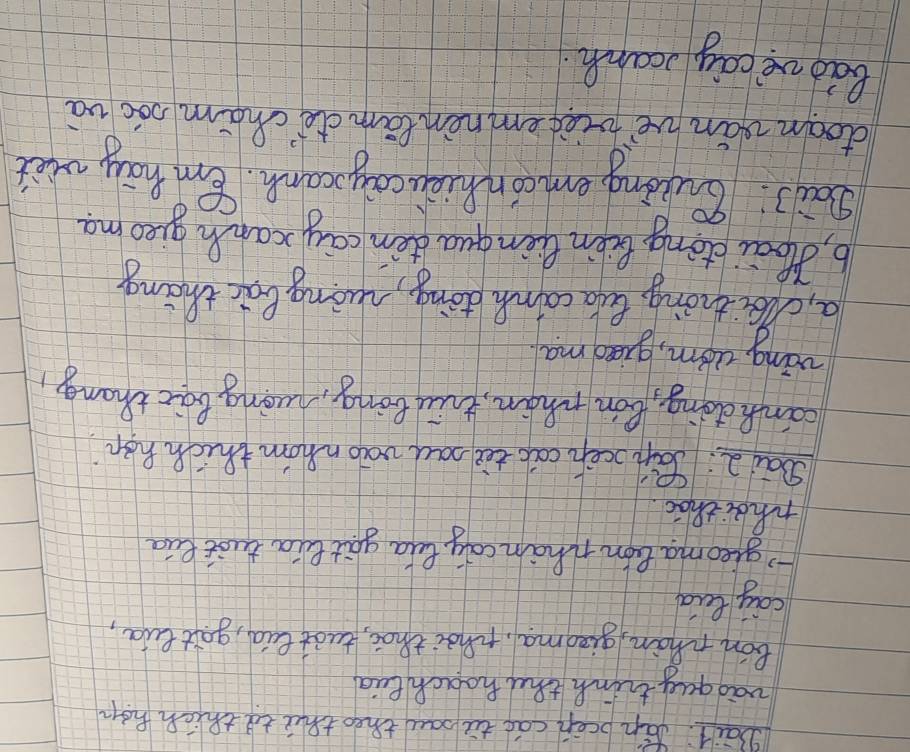 Bài 1: Sắp xếp các từ sau theo thứ tự thích hợp
vào quy trình thu hoạch lúa
bón phân, gieo mạ, phơi thóc, tuốt lúa, gặt lúa,
cấy lúa
→ gieo mạ bón phân cấy lúa gặt lúa tuốt lúa
phơi thóc.
Bài 2: Sắp xếp các từ sau vào nhóm thích hợp.
cánh đồng, bón phân, trĩu bông, ruộng bậc thang,
vàng ươm, gieo mạ.
a, Nơi trồng lúa cánh đồng, ruộng bậc thang
b, Hoạt động liên quan đến cây xanh gieo mạ
Bài 3: Trường em có nhiều cây xanh. Em hãy viết
đoạn văn về việc em nên làm để chăm sóc và
bảo vệ cây xanh.